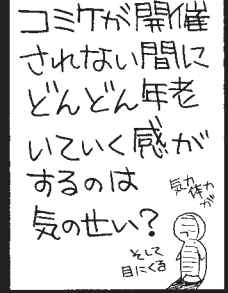 コミケが開催
されない間に
どんどん年老
いていく感が
するのは
気のせい？
気力
体力
が
そして
目にくる